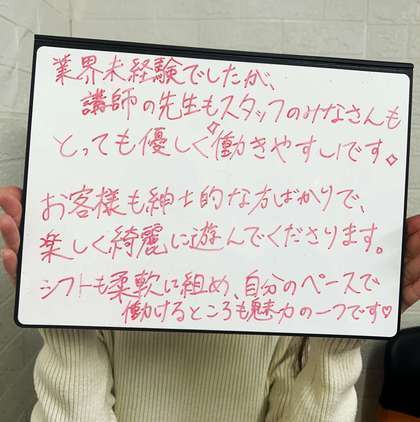 業界未経験でしたが、
講師の先生もスタッフのみなさんも
とっても優しく働きやすいです♢
お客様も紳士的な方ばかりで、
楽しく綺麗に遊んでくださります。
シフトも柔軟に組め、自分のペースで
働けるところも魅力の一つです♡